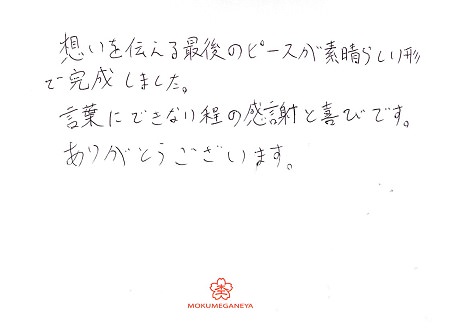 想いを伝える最後のピースが素晴らしい形
で完成しました。
言葉にできない程の感謝と喜びです。
ありがとうございます。
MOKUMEGANEYA